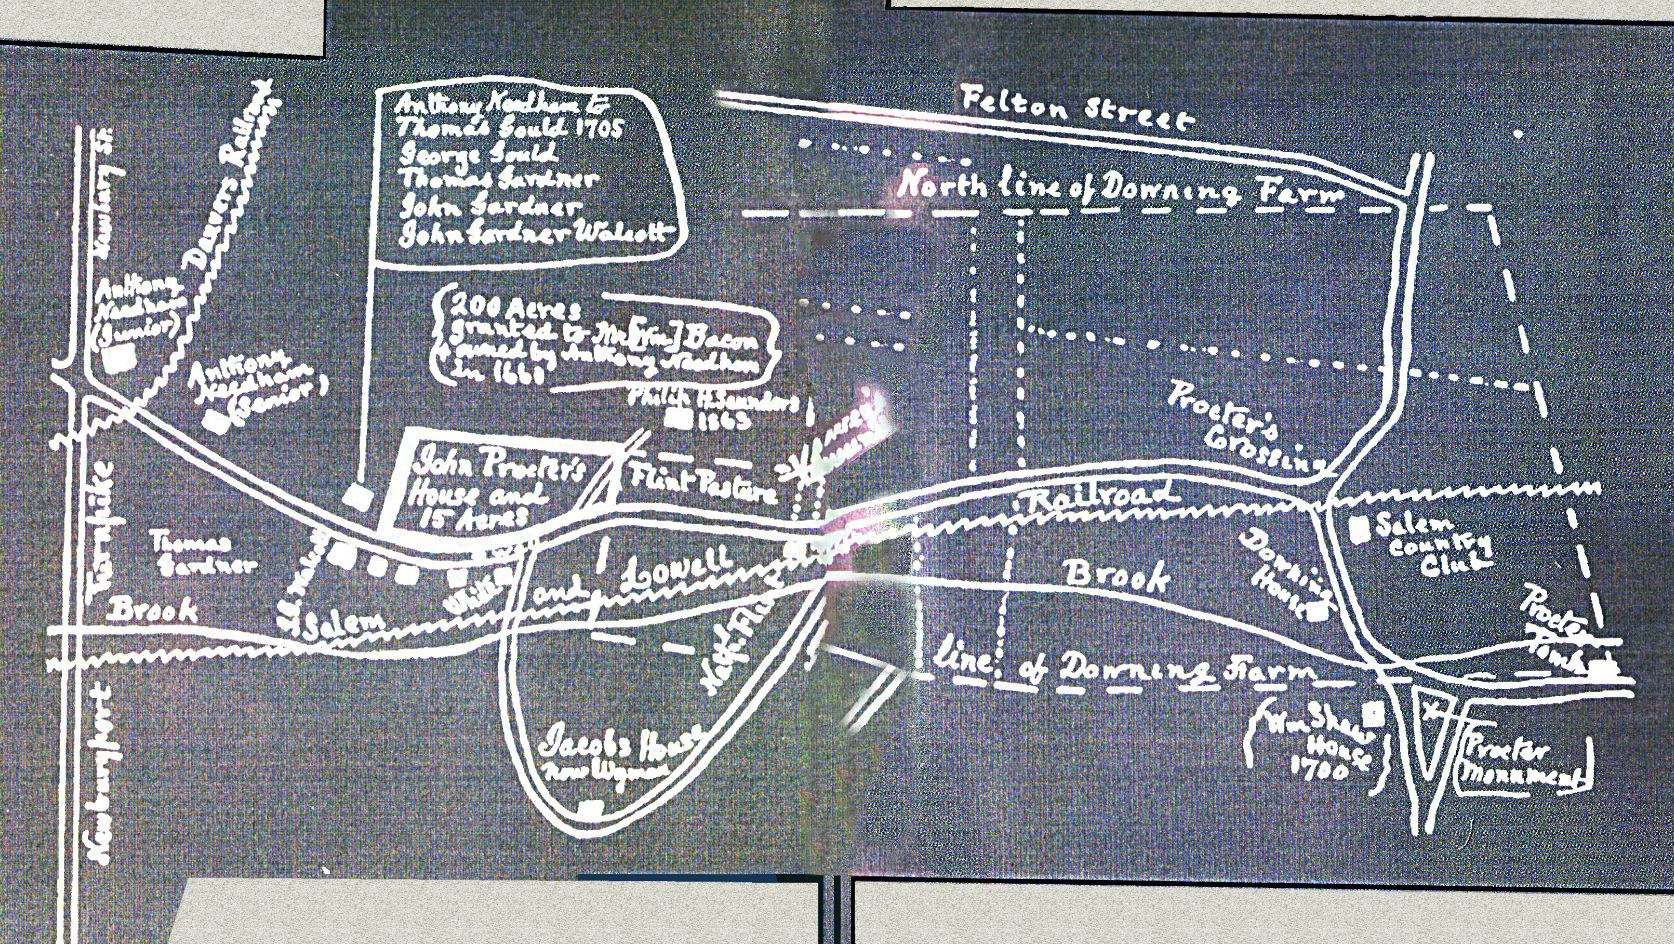 Felton Street
North line of Downing Farm
Anthony Needham to
Thomas Gould 1705
George Gould
Thomas Gardner
John Gardner
John Gardner Walcott
Danvers Railroad
Newbury St
Anthony
Needham
(Senior)
Anthony
Needham
(Senior)
200 Acres
granted to Mr [Wm] Bacon
owned by Anthony Needham
in 1661
Philip H. Saunders
1865
John Procter's
House and
15 Acres
Flint Pasture
Procter's
Crossing
Railroad
Salem
Country
Club
Thomas
Gardner
Brook
Salem
and Lowell
Brook
Downing
House
Procter
Tomb
line of Downing Farm
Jacobs House
now Wyman
Wm Shaw
House
1700
Procter
Monument
Newburyport Turnpike